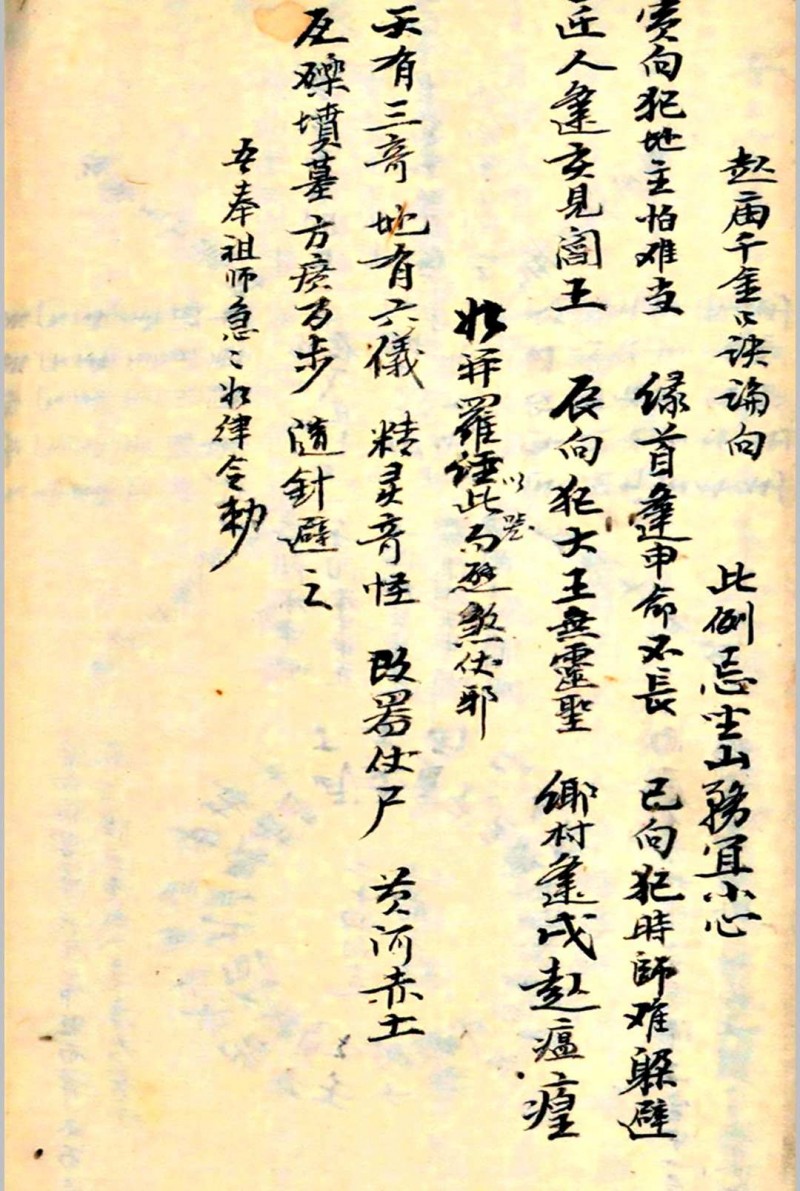 起庙千金口诀論向 此例忌坐山務宜小心
寅向犯地主怕难当 缘首逢申命不長 已向犯時師难躲避
匠人逢亥見閻王 辰向犯大王無靈聖 鄉村逢戌起瘟瘟
以號
天有三奇 地有六儀 精灵奇怪 故器伏尸 黄河赤土
瓦礫墳墓 方廣百步 随針避之
吾奉祖师急〻如律令勅